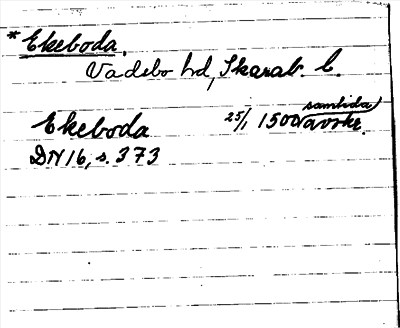 * Ekeboda.
Vadsbo hd, Skarab. l.
samtida
Ekeboda 25/1 1500 avskr.
DN 16, s. 373